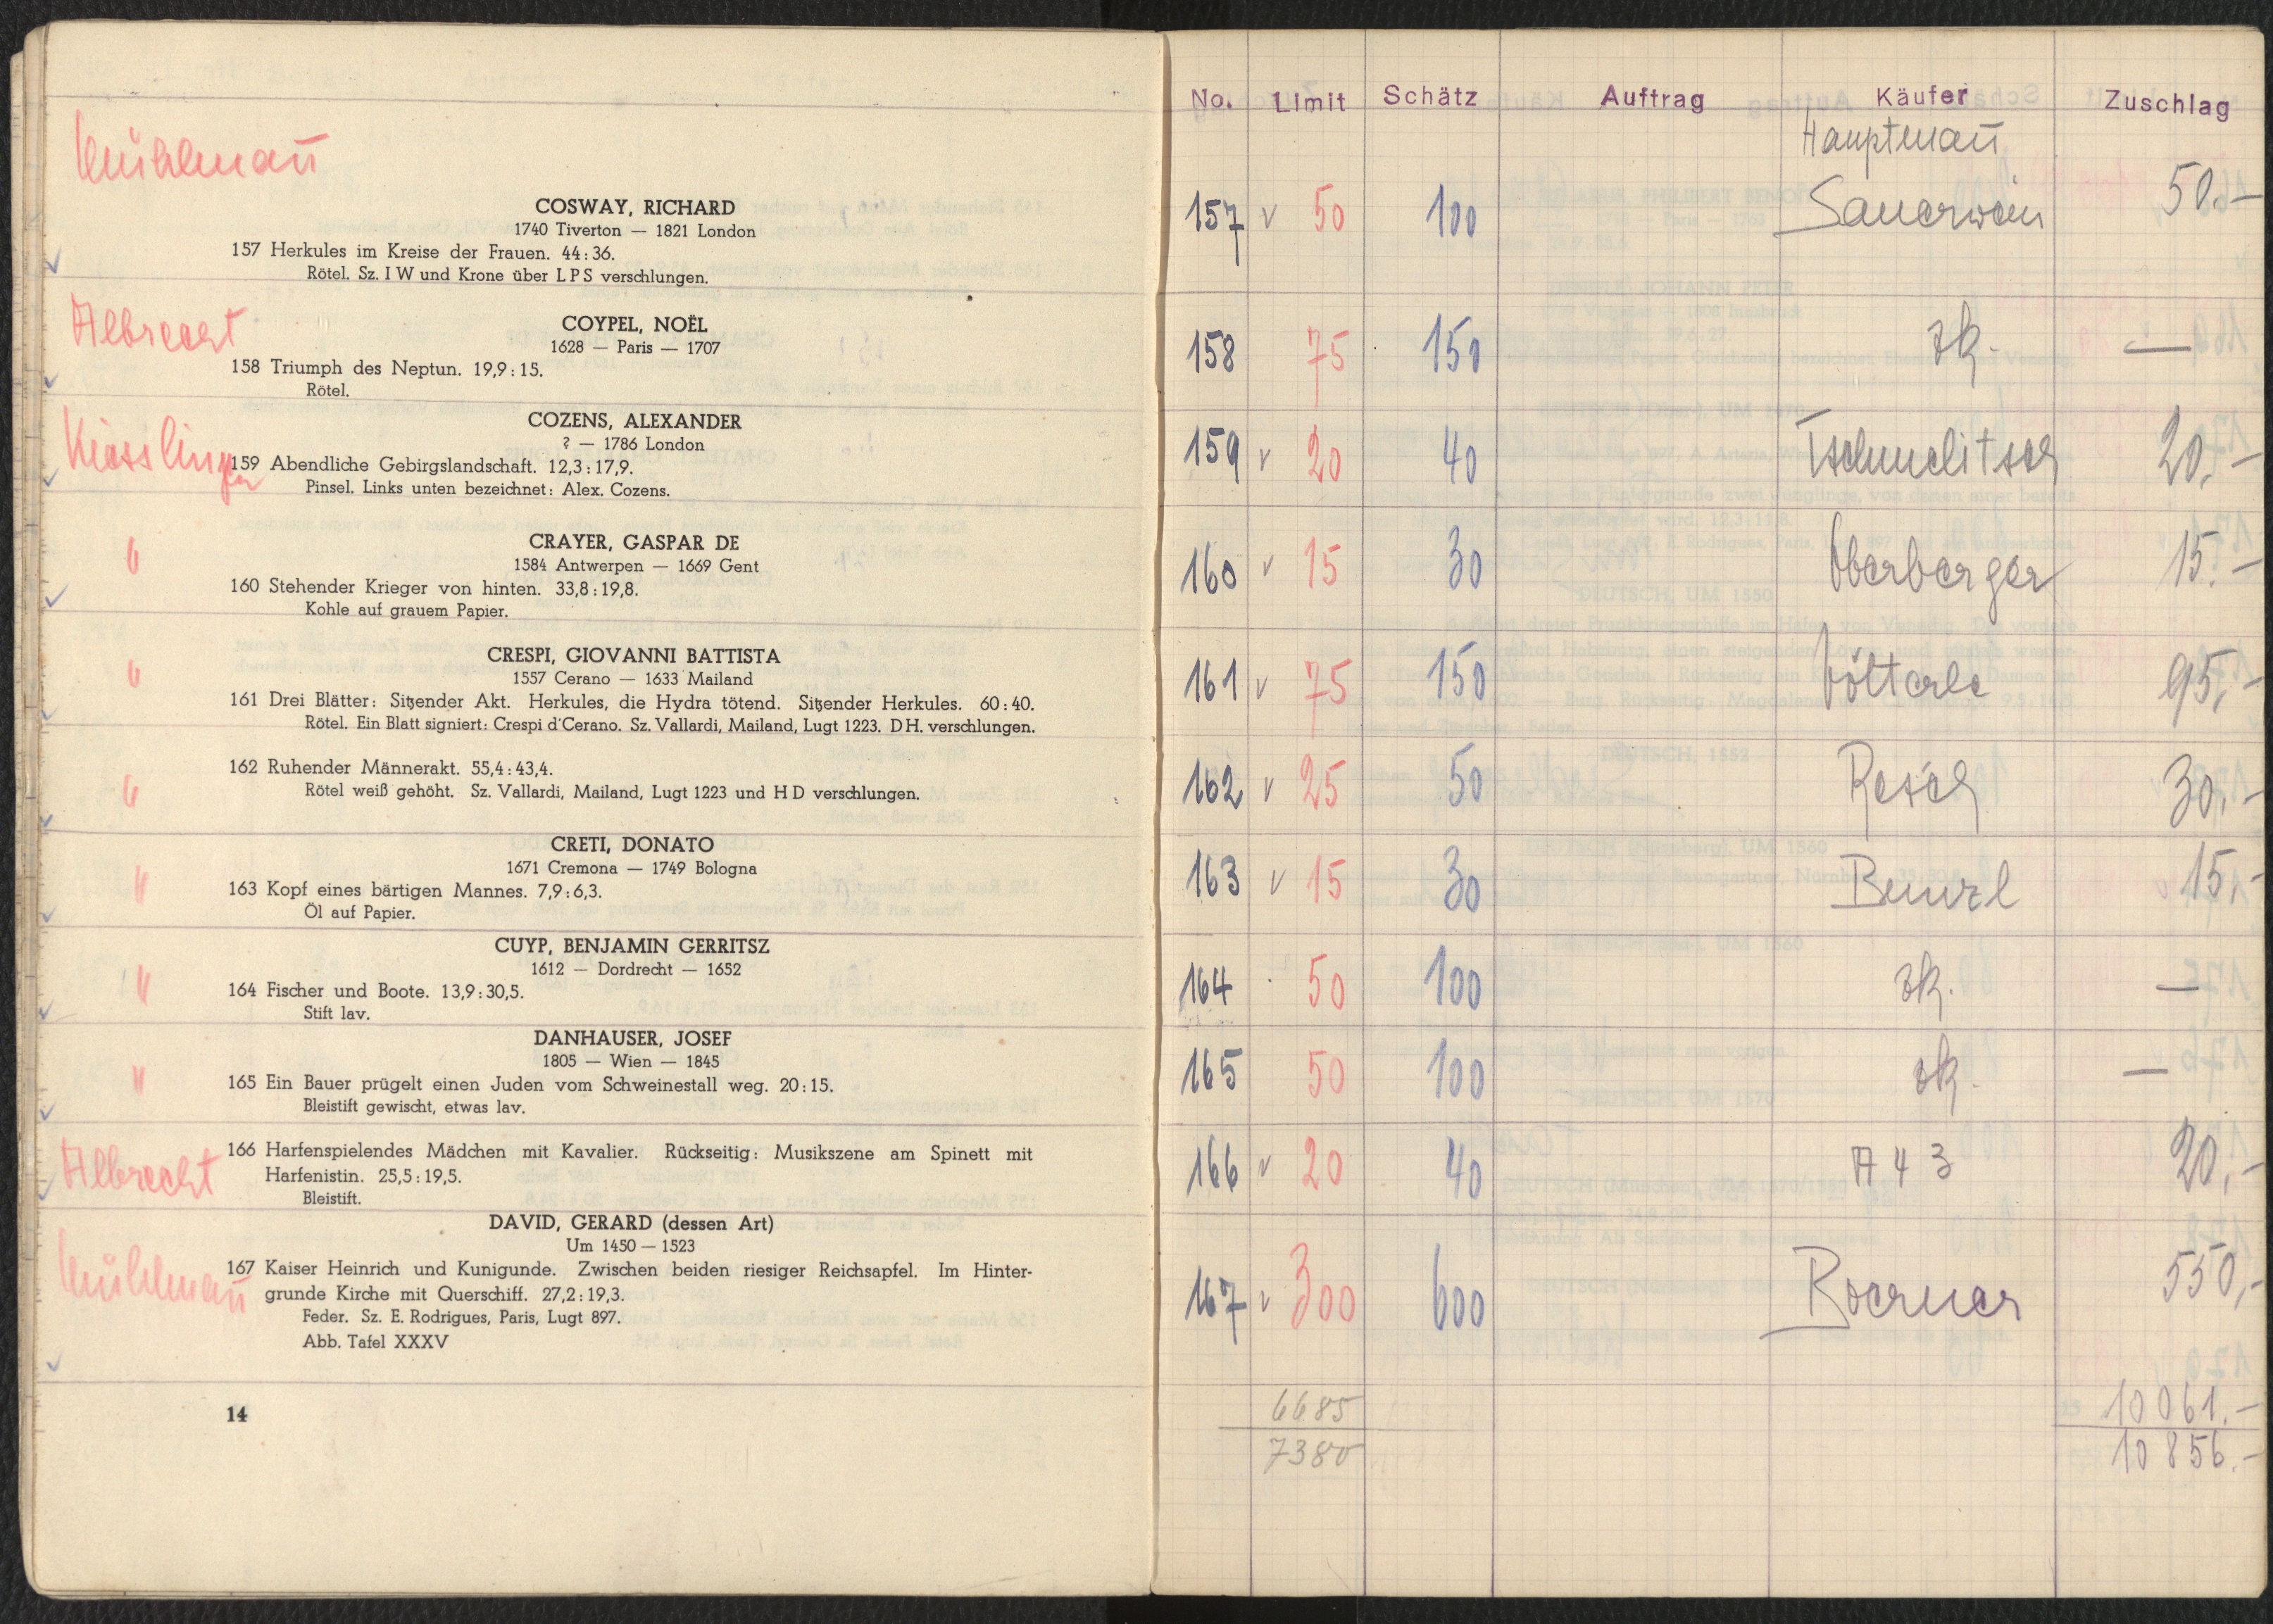 Mühlmañ
COSWAY, RICHARD
1740 Tiverton — 1821 London
157 Herkules im Kreise der Frauen. 44:36.
Rötel. Sz. I W und Krone über L P S verschlungen.
Albrecht
COYPEL, NOËL
1628 — Paris — 1707
158 Triumph des Neptun. 19,9:15.
Rötel.
Kiesslinger
COZENS, ALEXANDER
? — 1786 London
159 Abendliche Gebirgslandschaft. 12,3:17,9.
Pinsel. Links unten bezeichnet: Alex. Cozens.
"
CRAYER, GASPAR DE
1584 Antwerpen — 1669 Gent
160 Stehender Krieger von hinten. 33,8:19,8.
Kohle auf grauem Papier.
"
CRESPI, GIOVANNI BATTISTA
1557 Cerano — 1633 Mailand
161 Drei Blätter: Sitzender Akt. Herkules, die Hydra tötend. Sitzender Herkules. 60:40.
Rötel. Ein Blatt signiert: Crespi d'Cerano. Sz. Vallardi, Mailand, Lugt 1223. D H. verschlungen.
"
162 Ruhender Männerakt. 55,4:43,4.
Rötel weiß gehöht. Sz. Vallardi, Mailand, Lugt 1223 und H D verschlungen.
"
CRETI, DONATO
1671 Cremona — 1749 Bologna
163 Kopf eines bärtigen Mannes. 7,9:6,3.
Öl auf Papier.
"
CUYP, BENJAMIN GERRITSZ
1612 — Dordrecht — 1652
164 Fischer und Boote. 13,9:30,5.
Stift lav.
"
DANHAUSER, JOSEF
1805 — Wien — 1845
165 Ein Bauer prügelt einen Juden vom Schweinestall weg. 20:15.
Bleistift gewischt, etwas lav.
Albrecht
166 Harfenspielendes Mädchen mit Kavalier. Rückseitig: Musikszene am Spinett mit
Harfenistin. 25,5:19,5.
Bleistift.
Mühlmañ
DAVID, GERARD (dessen Art)
Um 1450 — 1523
167 Kaiser Heinrich und Kunigunde. Zwischen beiden riesiger Reichsapfel. Im Hinter-
grunde Kirche mit Querschiff. 27,2:19,3.
Feder. Sz. E. Rodrigues, Paris, Lugt 897.
Abb. Tafel XXXV
14
No. Limit Schätz Auftrag Käufer Zuschlag
Hauptmañ
157 v 50 100 Sauerwein 50.—
158 75 150 zk. —
159 v 20 40 Tschmelitsch 20,—
160 v 15 30 Oberberger 15.—
161 v 75 150 Völterle 95,—
162 v 25 50 Resch 30,—
163 v 15 30 15,—
164 50 100 zk. —
165 50 100 zk. —
166 v 20 40 A 43 20,—
167 v 300 600 Boerner 550,—
6685 10061.—
7380 10856.—